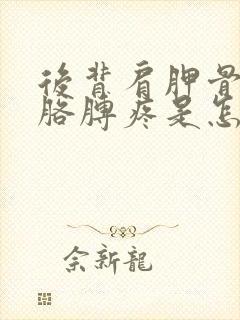 後背肩胛骨
胳膊疼是怎
佘新龍